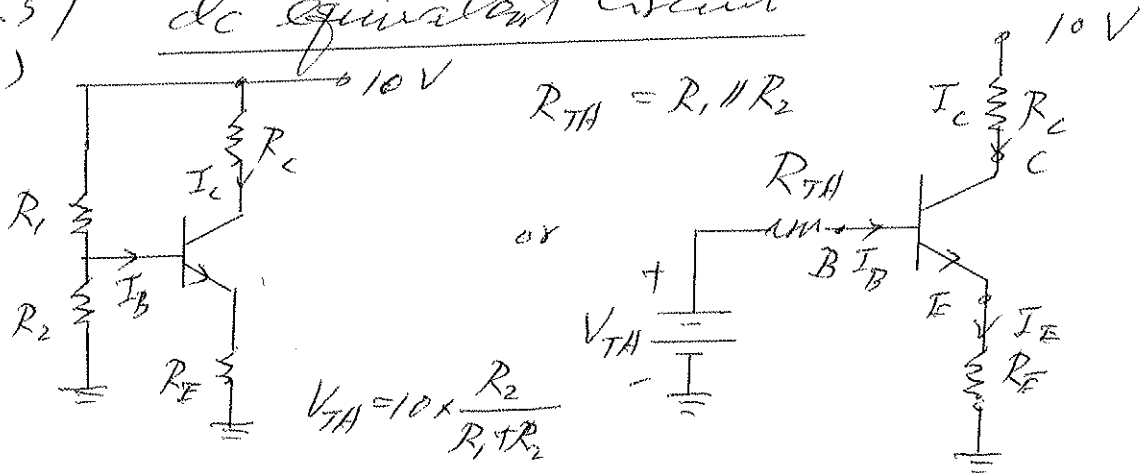 .5) dc equivalent circuit
)
10 V
R_C
I_C
R_1
I_B
R_2
R_E
R_TH = R_1 // R_2
or
V_TH = 10 × R_2 / (R_1 + R_2)
10 V
I_C R_C
C
R_TH
B I_B
+
V_TH
-
E I_E
R_E